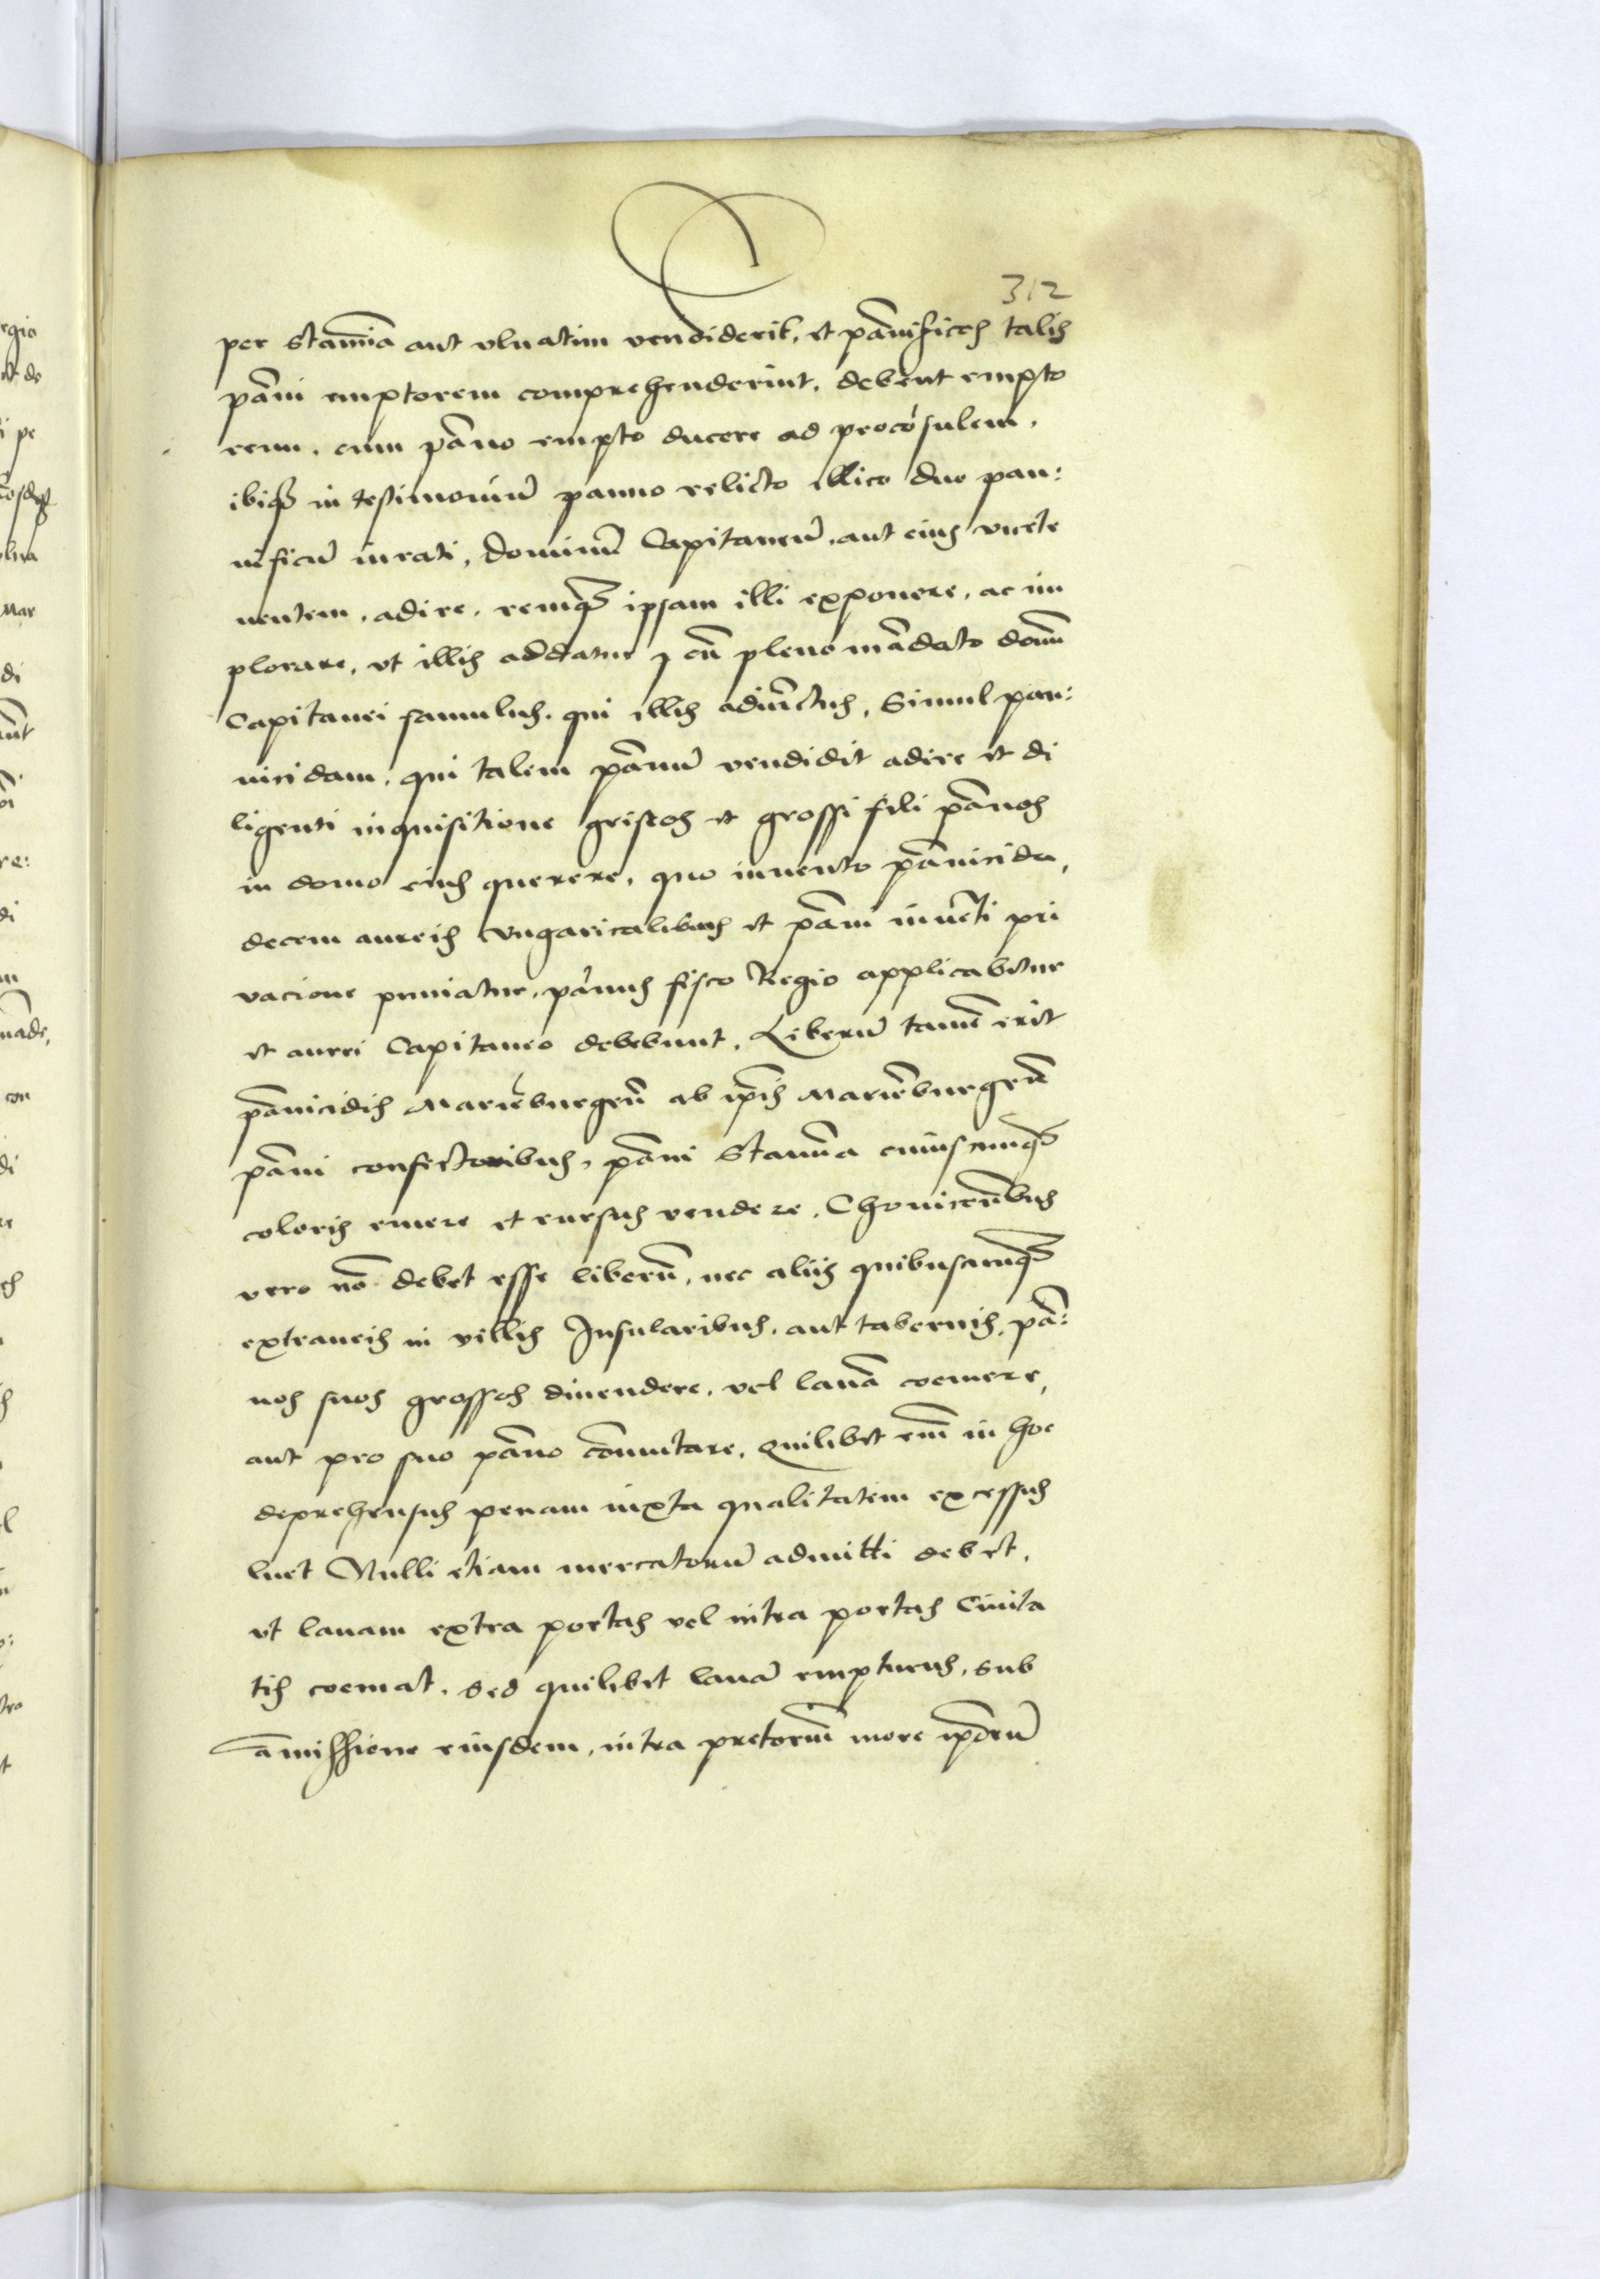 312
per stamīa aut vlnatim vendiderit, et pānifices talis
pāni emptorem comprehenderint, debent empto
rem, cum pāno empto ducere ad procōsulem,
ibiqȝ in testimoniū panno relicto illico duo pan:
nificū iurati, dominū Capitaneū, aut eius vicete
nentem, adire, remqȝ ipsam illi exponere, ac im
plorare, vt illis addatur cū pleno mādato domī
Capitanei famulus, qui illis adiūctus, Simul pan:
nicidam, qui talem pānū vendidit adire et di
ligenti inquisitione griseos et grossi fili pānos
in domo eius querere, quo inuento pānicida,
decem aureis vngaricalibus et pāni inuēti pri
vacione puniatur, pānus fisco Regio applicabitur
et aurei Capitaneo debebunt, Liberū tamē erit
pānicidis Mariēburgeñ ab ip̄is Mariēburgeñ
pāni confectoribus, pāni stamina cuiuscumqȝ
coloris emere et rursus vendere, Choniceñbus
vero nō debet esse liberū, nec aliis quibuscumqȝ
extraneis in villis Insularibus, aut tabernis, pā:
nos suos grossos diuendere, vel lanā coemere,
aut pro suo pāno cōmutare, Quilibet em̄ in hoc
deprehensus penam iuxta qualitatem excessus
luet Nulli etiam mercatorū admitti debet,
vt lanam extra portas vel intra portas Ciuita
tis coemat, sed quilibet lanā empturus, sub
āmissione eiusdem, intra pretoriū more ip̄orū